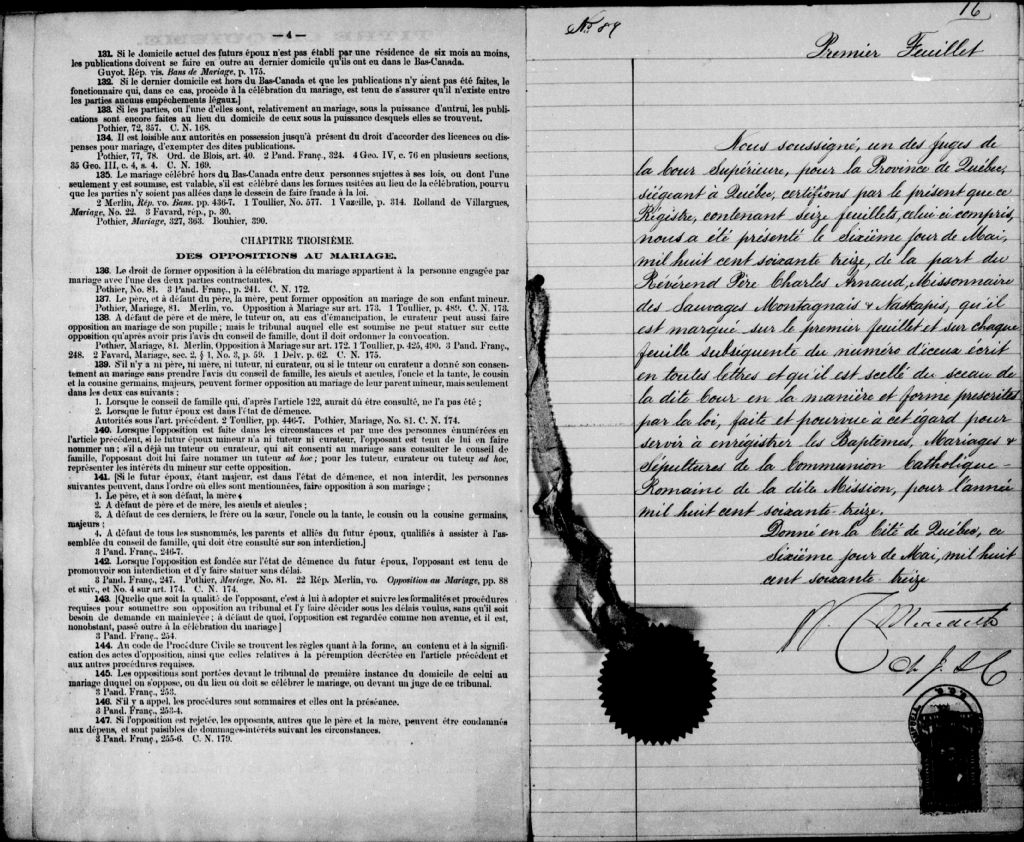 — 4 —
131. Si le domicile actuel des futurs époux n'est pas établi par une résidence de six mois au moins,
les publications doivent se faire en outre au dernier domicile qu'ils ont eu dans le Bas-Canada.
Guyot. Rép. vis. Bans de Mariage, p. 175.
132. Si le dernier domicile est hors du Bas-Canada et que les publications n'y aient pas été faites, le
fonctionnaire qui, dans ce cas, procède à la célébration du mariage, est tenu de s'assurer qu'il n'existe entre
les parties aucuns empêchements légaux.]
133. Si les parties, ou l'une d'elles sont, relativement au mariage, sous la puissance d'autrui, les publi-
cations sont encore faites au lieu du domicile de ceux sous la puissance desquels elles se trouvent.
Pothier, 72, 357. C. N. 168.
134. Il est loisible aux autorités en possession jusqu'à présent du droit d'accorder des licences ou dis-
penses pour mariage, d'exempter des dites publications.
Pothier, 77, 78. Ord. de Blois, art. 40. 2 Pand. Franç., 324. 4 Geo. IV, c. 76 en plusieurs sections,
35 Geo. III, c. 4, s. 4. C. N. 169.
135. Le mariage célébré hors du Bas-Canada entre deux personnes sujettes à ses lois, ou dont l'une
seulement y est soumise, est valable, s'il est célébré dans les formes usitées au lieu de la célébration, pourvu
que les parties n'y soient pas allées dans le dessein de faire fraude à la loi.
2 Merlin, Rép. vo. Bans. pp. 436-7. 1 Toullier, No. 577. 1 Vazeille, p. 314. Rolland de Villargues,
Mariage, No. 22. 3 Favard, rép., p. 30.
Pothier, Mariage, 327, 363. Bouhier, 390.
CHAPITRE TROISIÈME.
DES OPPOSITIONS AU MARIAGE.
136. Le droit de former opposition à la célébration du mariage appartient à la personne engagée par
mariage avec l'une des deux parties contractantes.
Pothier, No. 81. 3 Pand. Franç., p. 241. C. N. 172.
137. Le père, et à défaut du père, la mère, peut former opposition au mariage de son enfant mineur.
Pothier, Mariage, 81. Merlin, vo. Opposition à Mariage sur art. 173. 1 Toullier, p. 489. C. N. 173.
138. A défaut de père et de mère, le tuteur ou, au cas d'émancipation, le curateur peut aussi faire
opposition au mariage de son pupille; mais le tribunal auquel elle est soumise ne peut statuer sur cette
opposition qu'après avoir pris l'avis du conseil de famille, dont il doit ordonner la convocation.
Pothier, Mariage, 81. Merlin, Opposition à Mariage sur art. 172. 1 Toullier, p. 425, 490. 3 Pand. Franç.,
248. 2 Favard, Mariage, sec. 2, § 1, No. 3, p. 59. 1 Delv. p. 62. C. N. 175.
139. S'il n'y a ni père, ni mère, ni tuteur, ni curateur, ou si le tuteur ou curateur a donné son consen-
tement au mariage sans prendre l'avis du conseil de famille, les aïeuls et aïeules, l'oncle et la tante, le cousin
et la cousine germains, majeurs, peuvent former opposition au mariage de leur parent mineur, mais seulement
dans les deux cas suivants;
1. Lorsque le conseil de famille qui, d'après l'article 122, aurait dû être consulté, ne l'a pas été;
2. Lorsque le futur époux est dans l'état de démence.
Autorités sous l'art. précédent. 2 Toullier, pp. 446-7. Pothier, Mariage, No. 81. C. N. 174.
140. Lorsque l'opposition est faite dans les circonstances et par une des personnes énumérées en
l'article précédent, si le futur époux mineur n'a ni tuteur ni curateur, l'opposant est tenu de lui en faire
nommer un; s'il a déjà un tuteur ou curateur, qui ait consenti au mariage sans consulter le conseil de
famille, l'opposant doit lui faire nommer un tuteur ad hoc; pour les tuteur, curateur ou tuteur ad hoc,
représenter les intérêts du mineur sur cette opposition.
141. [Si le futur époux, étant majeur, est dans l'état de démence, et non interdit, les personnes
suivantes peuvent, dans l'ordre où elles sont mentionnées, faire opposition à son mariage;
1. Le père, et à son défaut, la mère;
2. A défaut de père et de mère, les aïeuls et aïeules;
3. A défaut de ces derniers, le frère ou la sœur, l'oncle ou la tante, le cousin ou la cousine germains,
majeurs;
4. A défaut de tous les susnommés, les parents et alliés du futur époux, qualifiés à assister à l'as-
semblée du conseil de famille, qui doit être consulté sur son interdiction.]
3 Pand. Franç., 246-7.
142. Lorsque l'opposition est fondée sur l'état de démence du futur époux, l'opposant est tenu de
promouvoir son interdiction et d'y faire statuer sans délai.
3 Pand. Franç., 247. Pothier, Mariage, No. 81. 22 Rép. Merlin, vo. Opposition au Mariage, pp. 88
et suiv., et No. 4 sur art. 174. C. N. 174.
143. [Quelle que soit la qualité de l'opposant, c'est à lui à adopter et suivre les formalités et procédures
requises pour soumettre son opposition au tribunal et l'y faire décider sous les délais voulus, sans qu'il soit
besoin de demande en mainlevée; à défaut de quoi, l'opposition est regardée comme non avenue, et il est,
nonobstant, passé outre à la célébration du mariage]
3 Pand. Franç., 254.
144. Au code de Procédure Civile se trouvent les règles quant à la forme, au contenu et à la signifi-
cation des actes d'opposition, ainsi que celles relatives à la péremption décrétée en l'article précédent et
aux autres procédures requises.
145. Les oppositions sont portées devant le tribunal de première instance du domicile de celui au
mariage duquel on s'oppose, ou du lieu où doit se célébrer le mariage, ou devant un juge de ce tribunal.
3 Pand. Franç., 253.
146. S'il y a appel, les procédures sont sommaires et elles ont la préséance.
3 Pand. Franç., 253-4.
147. Si l'opposition est rejetée, les opposants, autres que le père et la mère, peuvent être condamnés
aux dépens, et sont paisibles de dommages-intérêts suivant les circonstances.
3 Pand. Franç., 255-6. C. N. 179.
16
No. 89
Premier Feuillet
Nous soussigné, un des juges de
la Cour Supérieure, pour la Province de Québec,
siégeant à Québec, certifions par le présent que ce
Régistre, contenant seize feuillets, celui-ci compris,
nous a été présenté le Sixième jour de Mai,
mil huit cent soixante treize, de la part du
Révérend Père Charles Arnaud, Missonnaire
des Sauvages Montagnais & Naskapis, qu'il
est marqué sur le premier feuillet et sur chaque
feuille subséquente du numéro d'iceux écrit
en toutes lettres et qu'il est scellé du sceau de
la dite Cour en la manière et forme prescrites
par la loi, faite et pourvue à cet égard pour
servir à enrégistrer les Baptêmes, Mariages &
Sépultures de la Communion Catholique-
Romaine de la dite Mission, pour l'année
mil huit cent soixante-treize.
Donné en la Cité de Québec, ce
Sixième jour de Mai, mil huit
cent soixante-treize
W C Meredith
Ch. J. S. C.